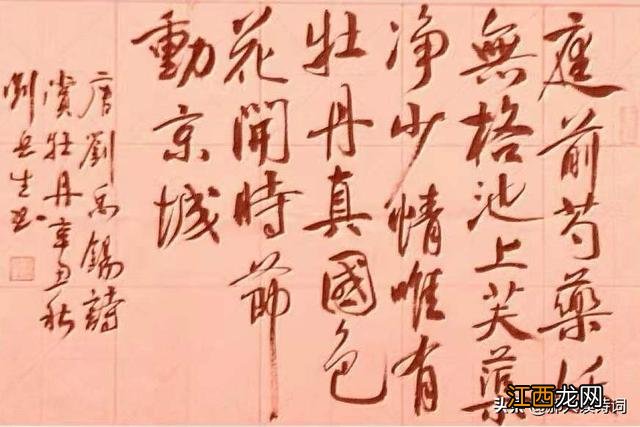 庭前芍藥妖
無格池上芙蕖
净少情唯有
牡丹真國色
花開時節
動京城
唐劉禹錫詩
賞牡丹辛丑秋
劉生书
江西龙网
诗词